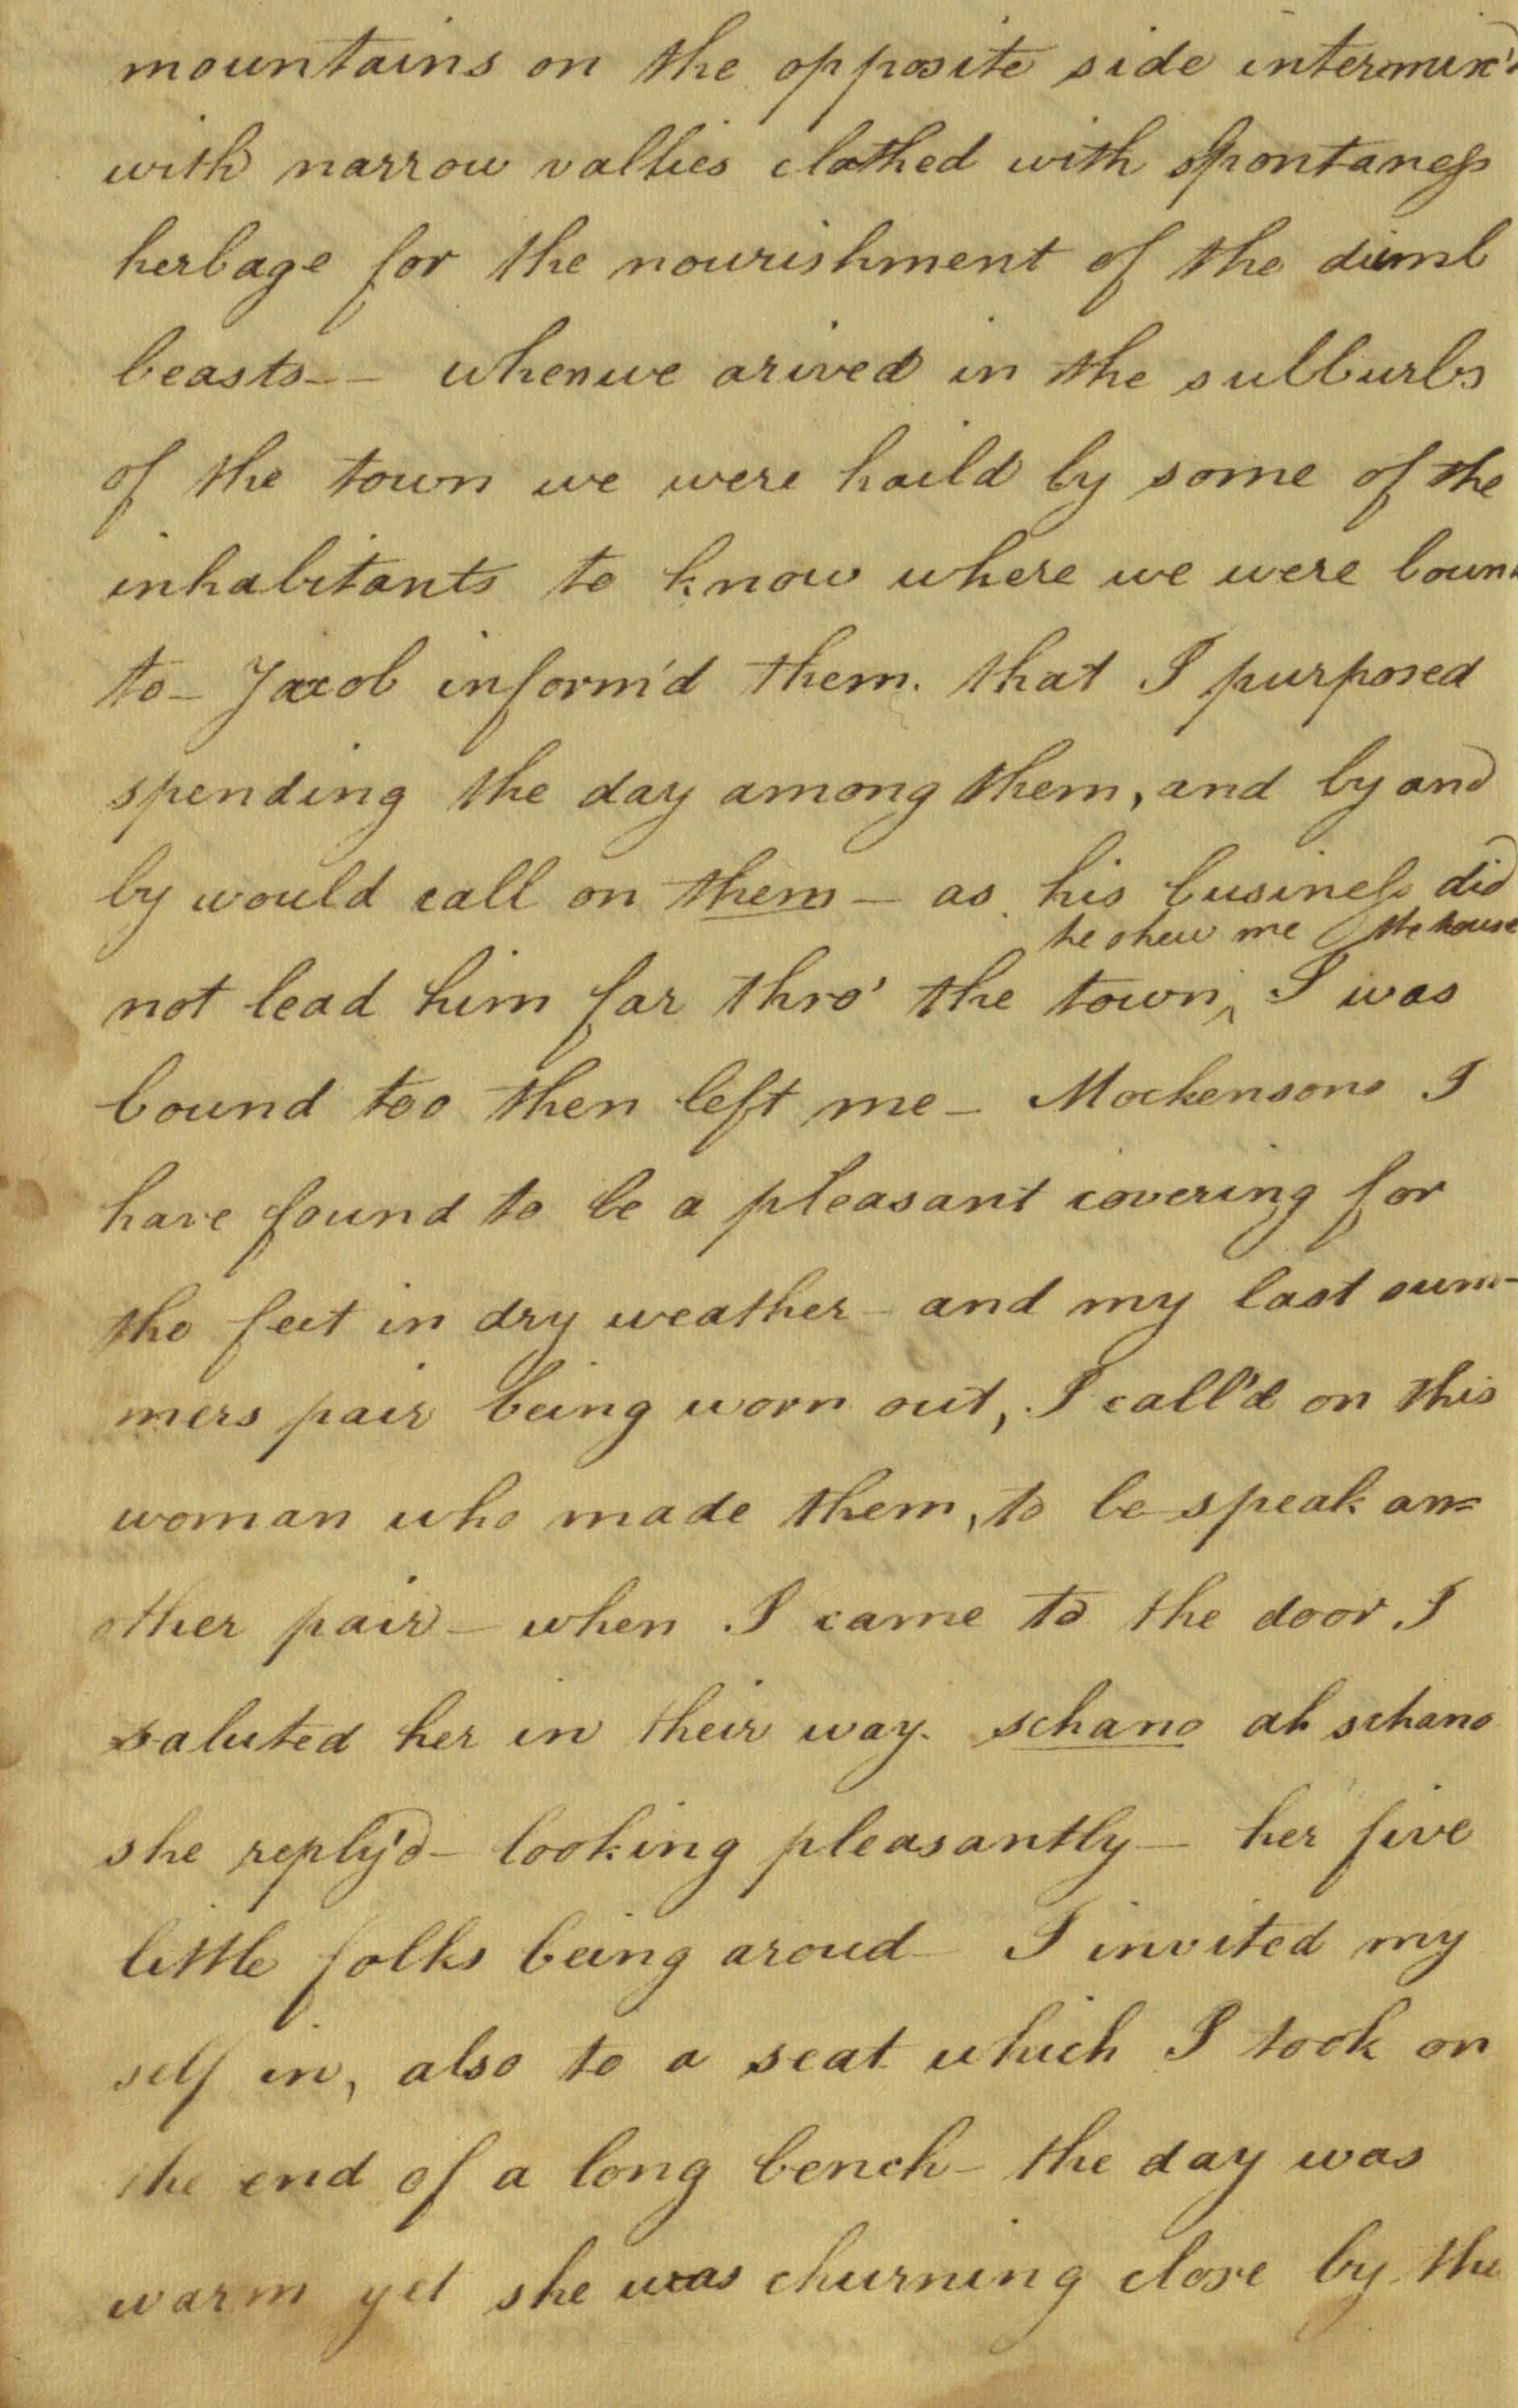 mountains on the opposite side intermix'd
with narrow vallies clothed with spontaness
herbage for the nourishment of the dumb
beasts-- when we arived in the subburbs
of the town we were haild by some of the
inhabitants to know where we were boun
to- Jacob inform'd them. that I purposed
spending the day among them, and by and
by would call on them - as his business did
he shew me the house
not lead him far thro' the town, ^ I was
bound too then left me - Mockensons I
have found to be a pleasant covering for
the feet in dry weather - and my last sum-
mers pair being worn out, I call'd on this
woman who made them, to be speak an=
other pair - when I came to the door I
saluted her in their way. schano ah schano
she reply'd - looking pleasantly - her five
little folks being aroud - I invited my
self in, also to a seat which I took on
the end of a long bench - the day was
warm yet she was churning close by the